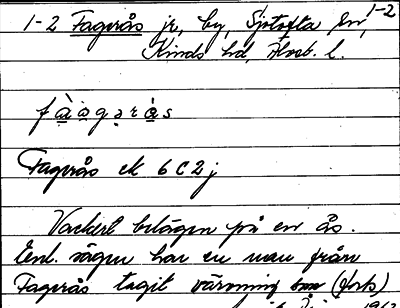 1-2
1-2 Fagerås jr, by, Sjötofta sn,
Kinds hd, Älvsb. l.
fà̱a̱gə̣rà̱s
Fagerås ek 6C2j
Vackert belägen på en ås.
Enl. sägen har en man från
Fagerås tagit värvning som (kork)